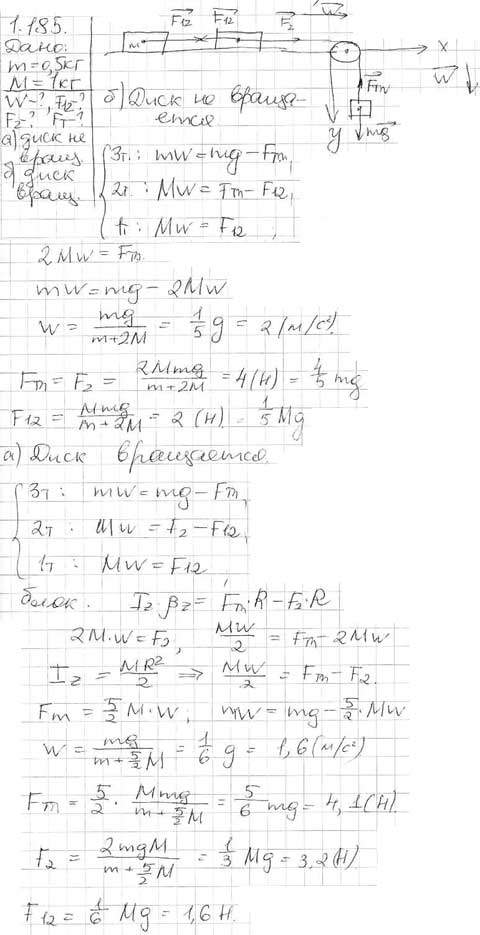 1.185.
Дано:
m=0,5кг
M=1кг
W-? F12-?
F2-? FT-?
а) диск не
вращ.
б) диск
вращ.
F12 F12 F2 W
m
x
y
Fm
W
mg
б) Диск не враща-
ется
3т: mw=mg-Fm,
2т: Mw=Fm-F12,
1т: Mw=F12,
2Mw=Fm.
mw=mg-2Mw
W = mg/(m+2M) = 1/5 g = 2 (м/с²).
Fm = F2 = 2Mmg/(m+2M) = 4(Н) = 4/5 mg
F12 = Mmg/(m+2M) = 2 (Н) = 1/5 Mg
а) Диск вращается.
3т: mw=mg-Fm,
2т: Mw=F2-F12,
1т: Mw=F12
блок. Iz·βz = Fm·R-F2·R
2M·w=F2, Mw/2 = Fm-2Mw
Iz = MR²/2 ⇒ Mw/2 = Fm-F2.
Fm = 5/2 M·w; mw=mg-5/2·Mw
W = mg/(m+5/2M) = 1/6 g = 1,6(м/с²)
Fm = 5/2 · Mmg/(m+5/2M) = 5/6 mg = 4,1(Н).
F2 = 2mgM/(m+5/2M) = 1/3 Mg = 3,2(Н)
F12 = 1/6 Mg = 1,6Н.